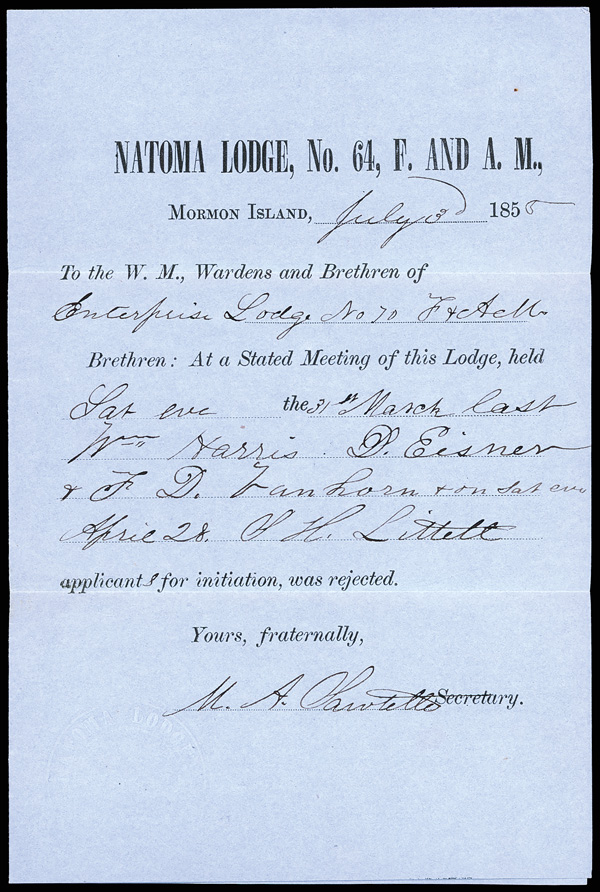 NATOMA LODGE, No. 64, F. AND A. M.,
MORMON ISLAND, July 3d 1855
To the W. M., Wardens and Brethren of
Enterprise Lodge No 70 F & A M
Brethren: At a Stated Meeting of this Lodge, held
Sat eve the 31st March last
Wm Harris. D. Eisner
& F. D. Vanhorn & on Sat eve
April 28. S H. Littell
applicants for initiation, was rejected.
Yours, fraternally,
M. A. Secretary.
LODGE